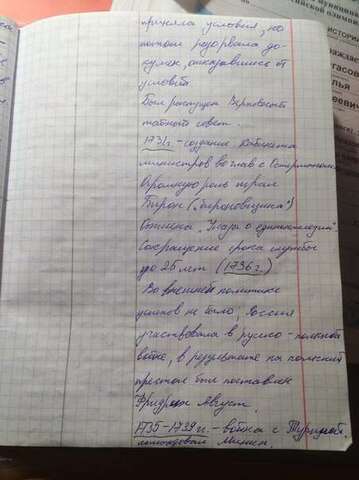 приняла условия, но
потом разорвала до-
кумент, отказавшись от
условий
Был распущен Верховный
тайный совет.
1731г - создание Кабинета
министров во главе с Остерманом
Огромную роль играл
Бирон („бироновщина")
Отмена „Указа о единонаследии".
Сокращение срока службы
до 25 лет (1736г.)
Во внешней политике
успехов не было, Россия
участвовала в русско-польской
войне, в результате на польский
престол был поставлен
Фридрих Август.
1735-1739гг. - война с Турцией,
командовал Миних.
ИСТОРИ